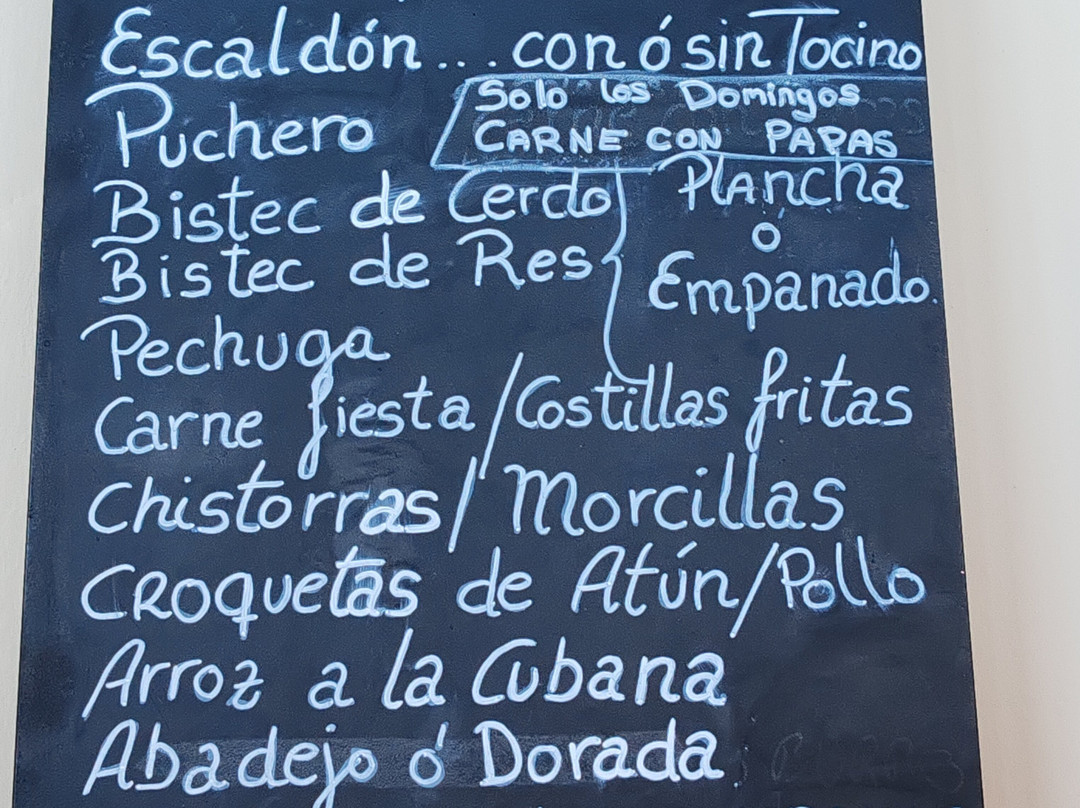 Escaldón... con ó sin Tocino
Puchero
Solo los Domingos
CARNE CON PAPAS
Bistec de Cerdo
Bistec de Res
Pechuga
Plancha
ó
Empanado.
Carne fiesta / Costillas fritas
Chistorras / Morcillas
CROquetas de Atún / Pollo
Arroz a la Cubana
Abadejo ó Dorada